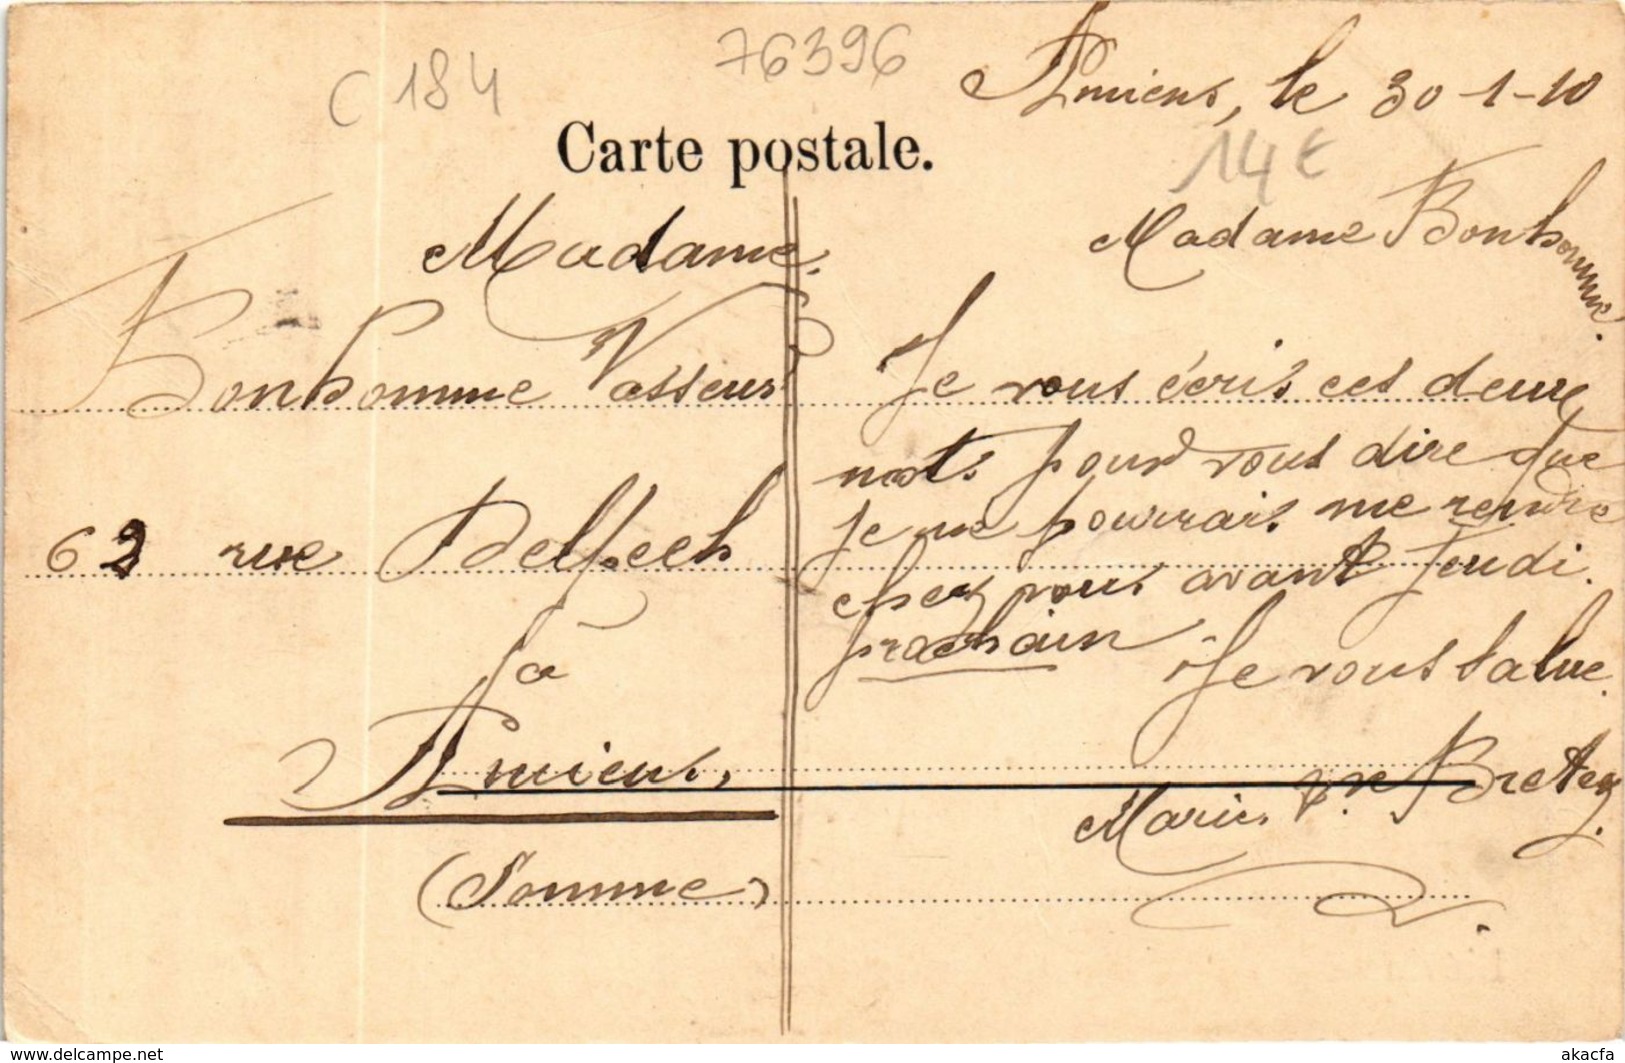 C 184
76396
Amiens, le 30-1-10
14 €
Carte postale.
Madame
Bonhomme Vasseur
62 rue Delpech
à
Amiens.
(Somme)
Madame Bonhomme.
Je vous écris ces deux
mots pour vous dire que
je ne pourrais me rendre
chez vous avant Jeudi
prochain Je vous salue.
Marie Bretez.
www.delcampe.net
akacfa